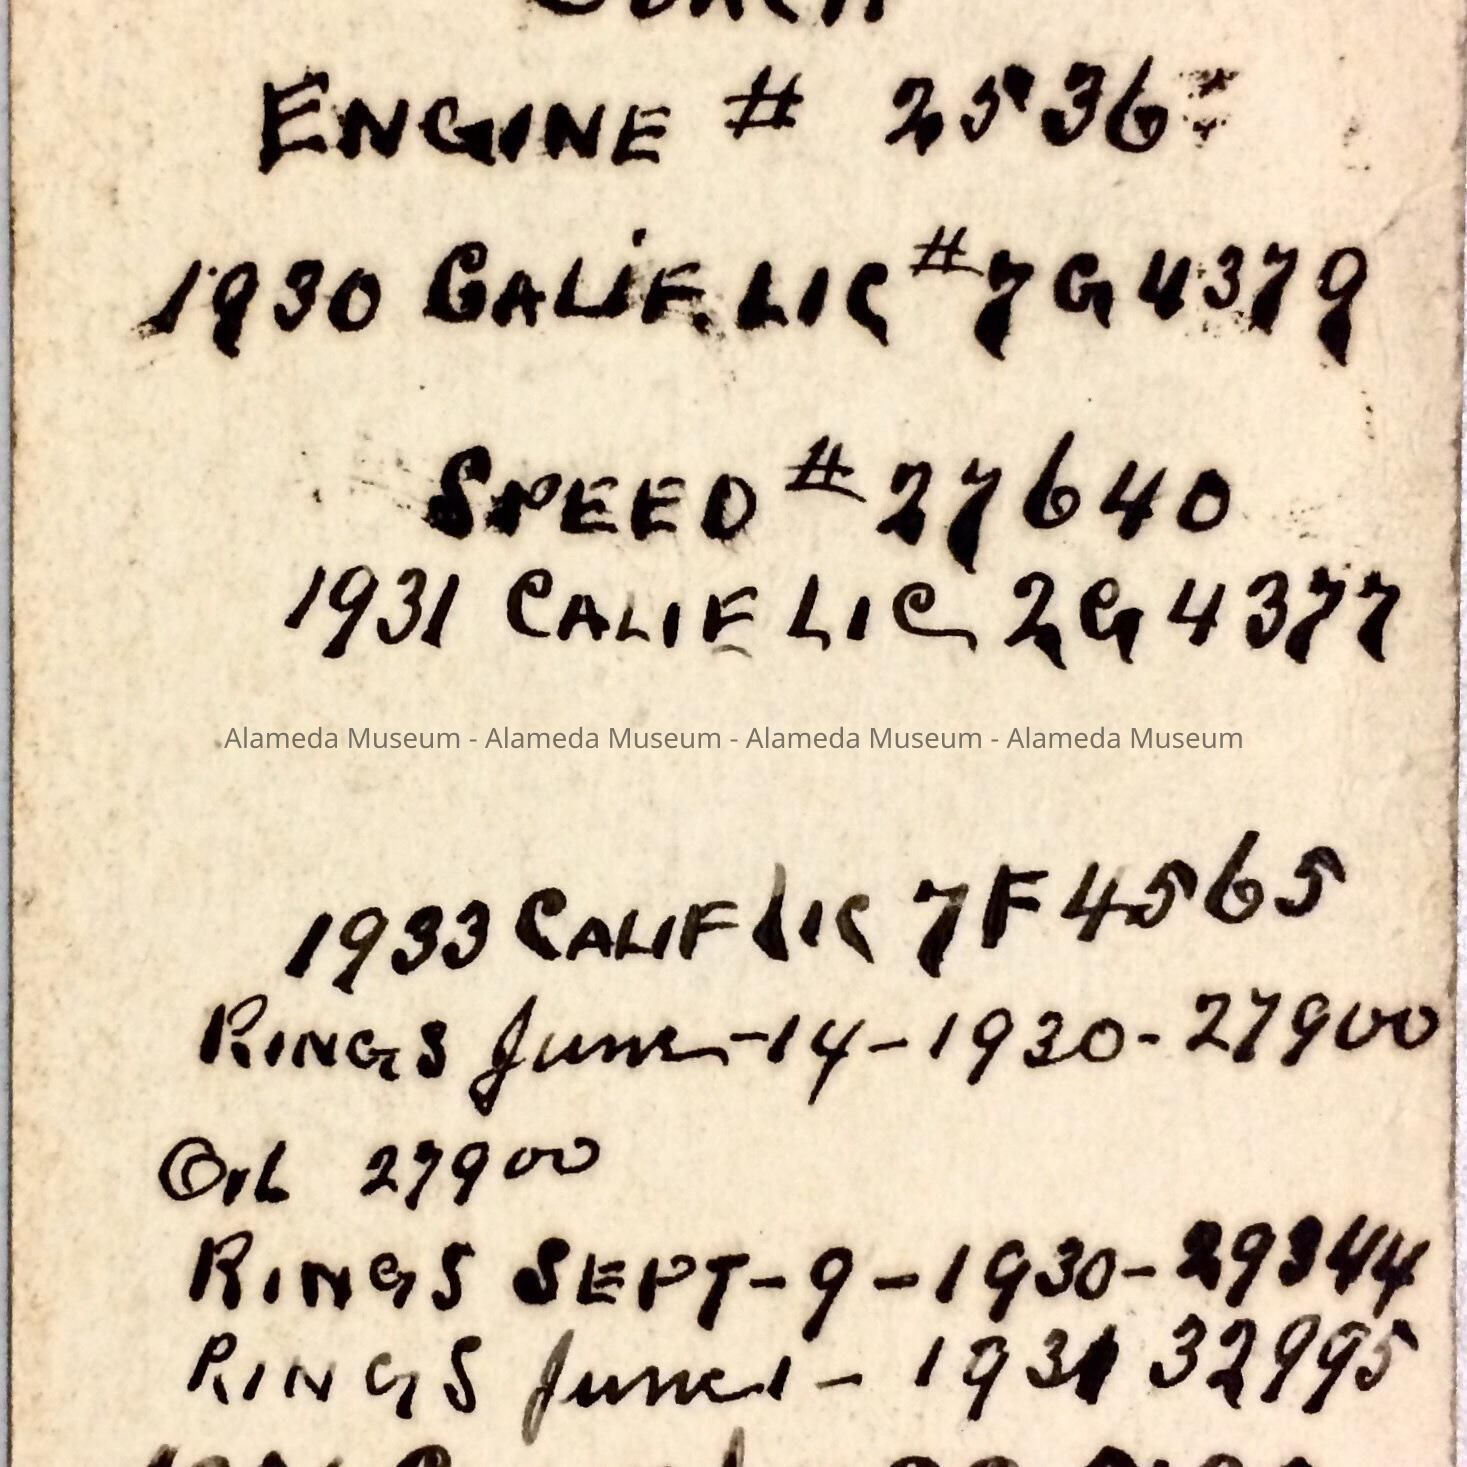 ENGINE # 2536
1930 CALIF. LIC #7G4379
SPEED #27640
1931 CALIF LIC 2G4377
Alameda Museum - Alameda Museum - Alameda Museum - Alameda Museum
1933 CALIF LIC 7F4565
RINGS June-14-1930-27900
OIL 27900
RINGS SEPT-9-1930-29344
RINGS June 1-1931 32995